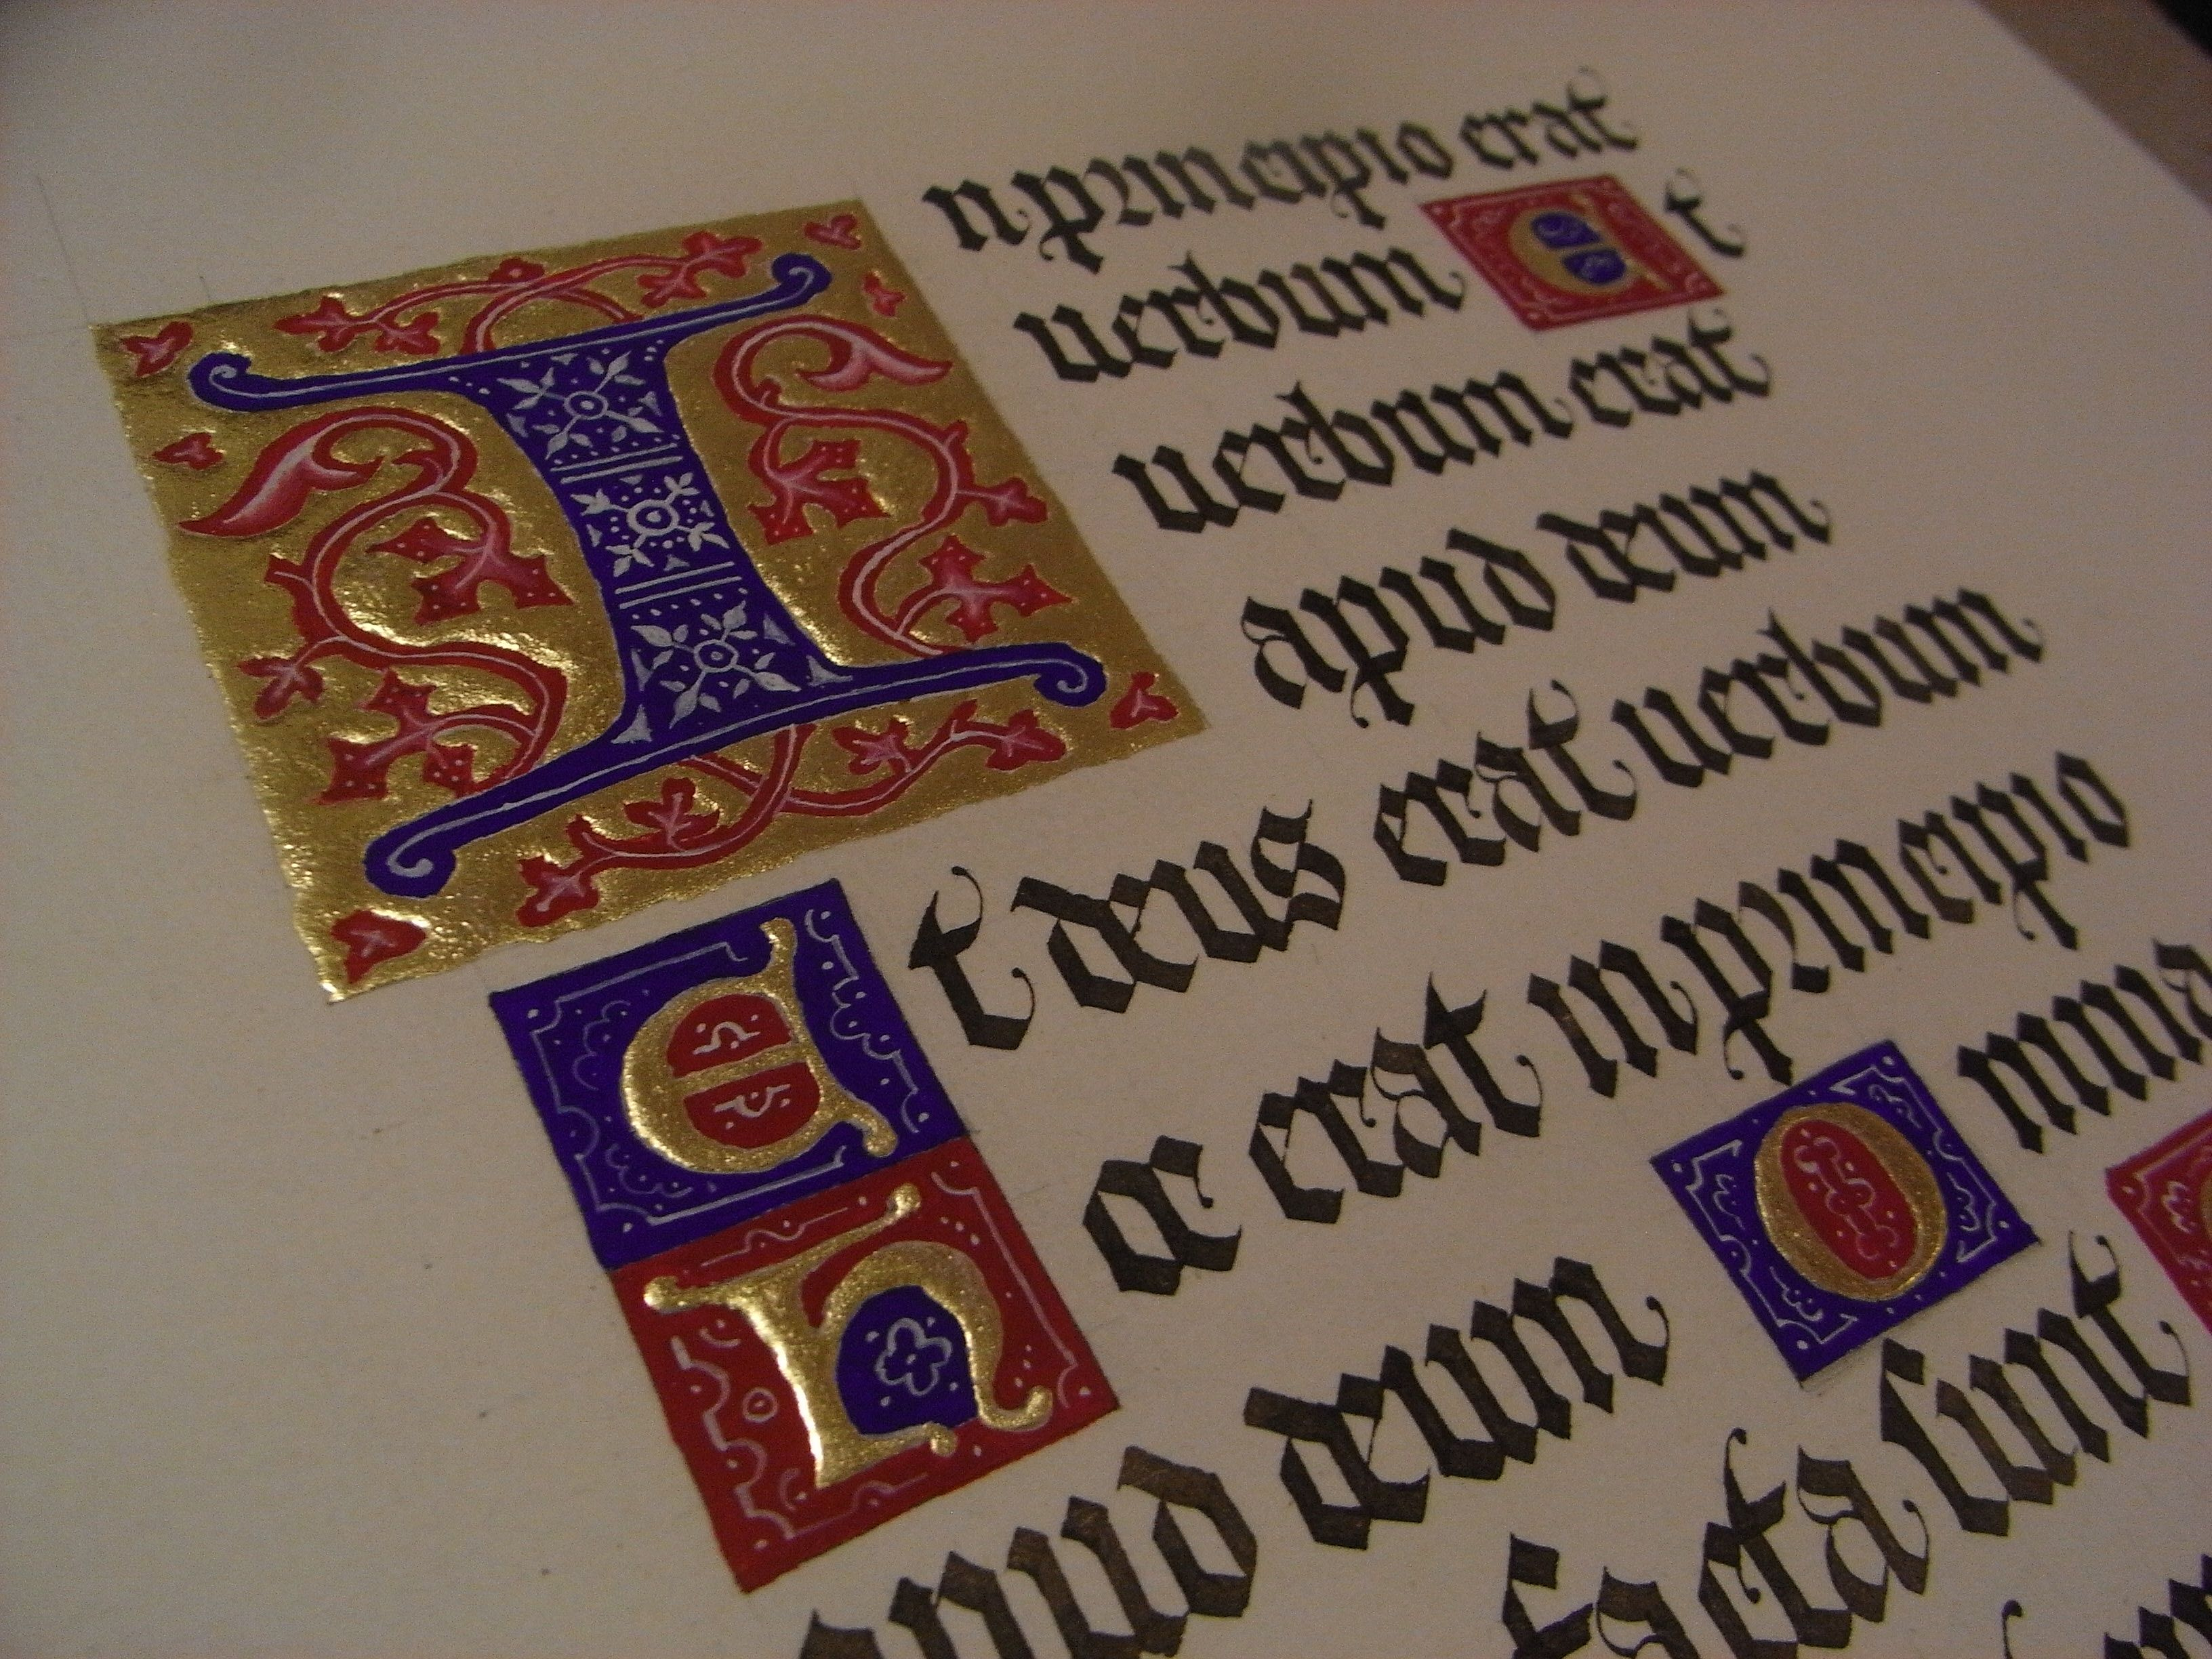 In principio erat
uerbum Et
uerbum erat
apud deum
Et deus erat uerbum
hoc erat in principio
apud deum Omnia
facta sunt